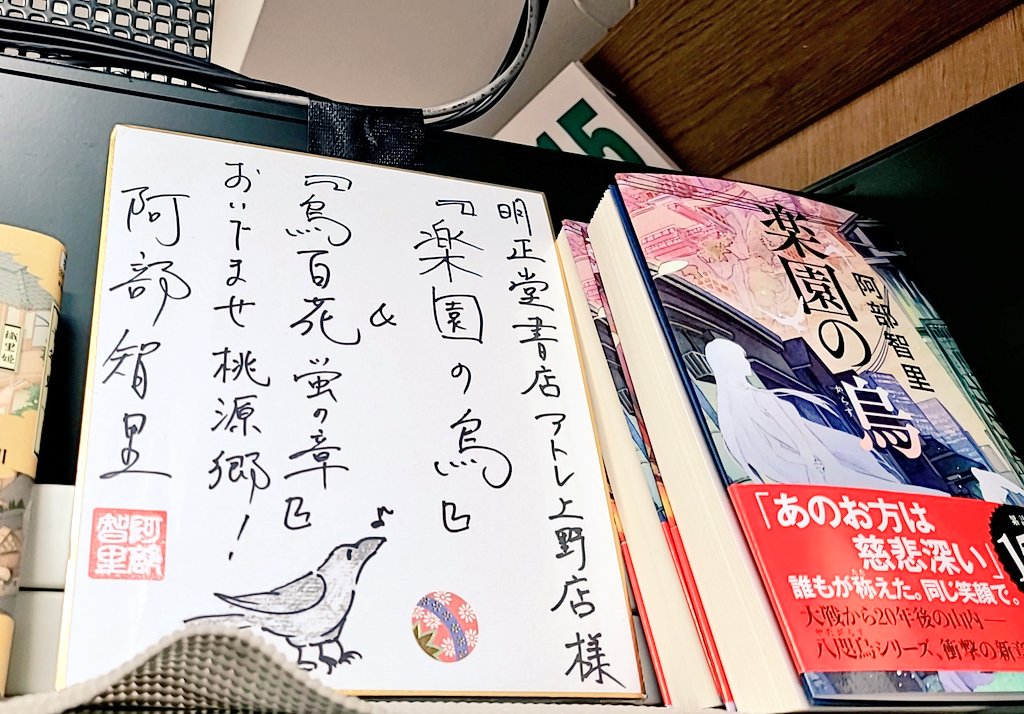 明正堂書店アトレ上野店様
『楽園の烏』
&
『烏百花 蛍の章』
おいでませ桃源郷!
阿部智里
阿部智里
楽園の烏
からす
阿部智里
「あのお方は
慈悲深い」
誰もが称えた。同じ笑顔で。
大戦から20年後の山内―
八咫烏シリーズ、衝撃の新章
やたがらす
15
織里姫